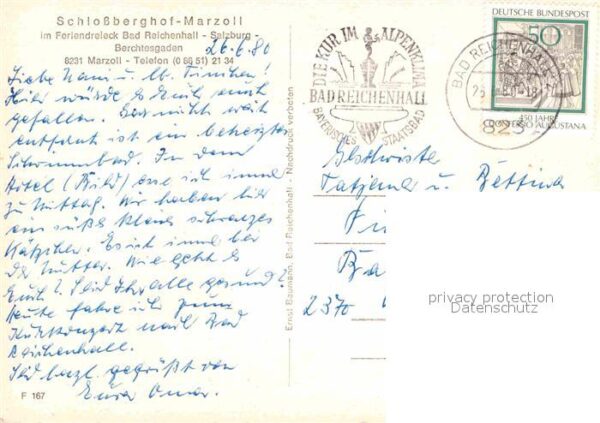 Schloßberghof-Marzoll
im Feriendreieck Bad Reichenhall - Salzburg -
Berchtesgaden
8231 Marzoll - Telefon (0 86 51) 21 34
26.6.80
Liebe Nani u. lb. Tinchen!
Hier würde es Euch auch
gefallen. Gar nicht weit
entfernt ist ein beheiztes
Schwimmbad. In dem
Hotel (Bild) esse ich immer
zu Mittag. Wir haben hier
ein süßes kleines schwarzes
Kätzchen. Es ist immer bei
der Mutter. Wie geht es
Euch? Seid Ihr alle gesund?
Heute fahre ich zum
Kurkonzert nach Bad
Reichenhall.
Seid herzl. gegrüßt von
Eurer Oma.
F 167
Ernst Baumann, Bad Reichenhall - Nachdruck verboten
DIE KUR IM ALPENKLIMA
BAD REICHENHALL
BAYERISCHES STAATSBAD
BAD REICHENHALL
823
DEUTSCHE BUNDESPOST
50
450 JAHRE
CONFESSIO AUGUSTANA
Geschwister
Tatjana u. Bettina
2370
privacy protection
Datenschutz